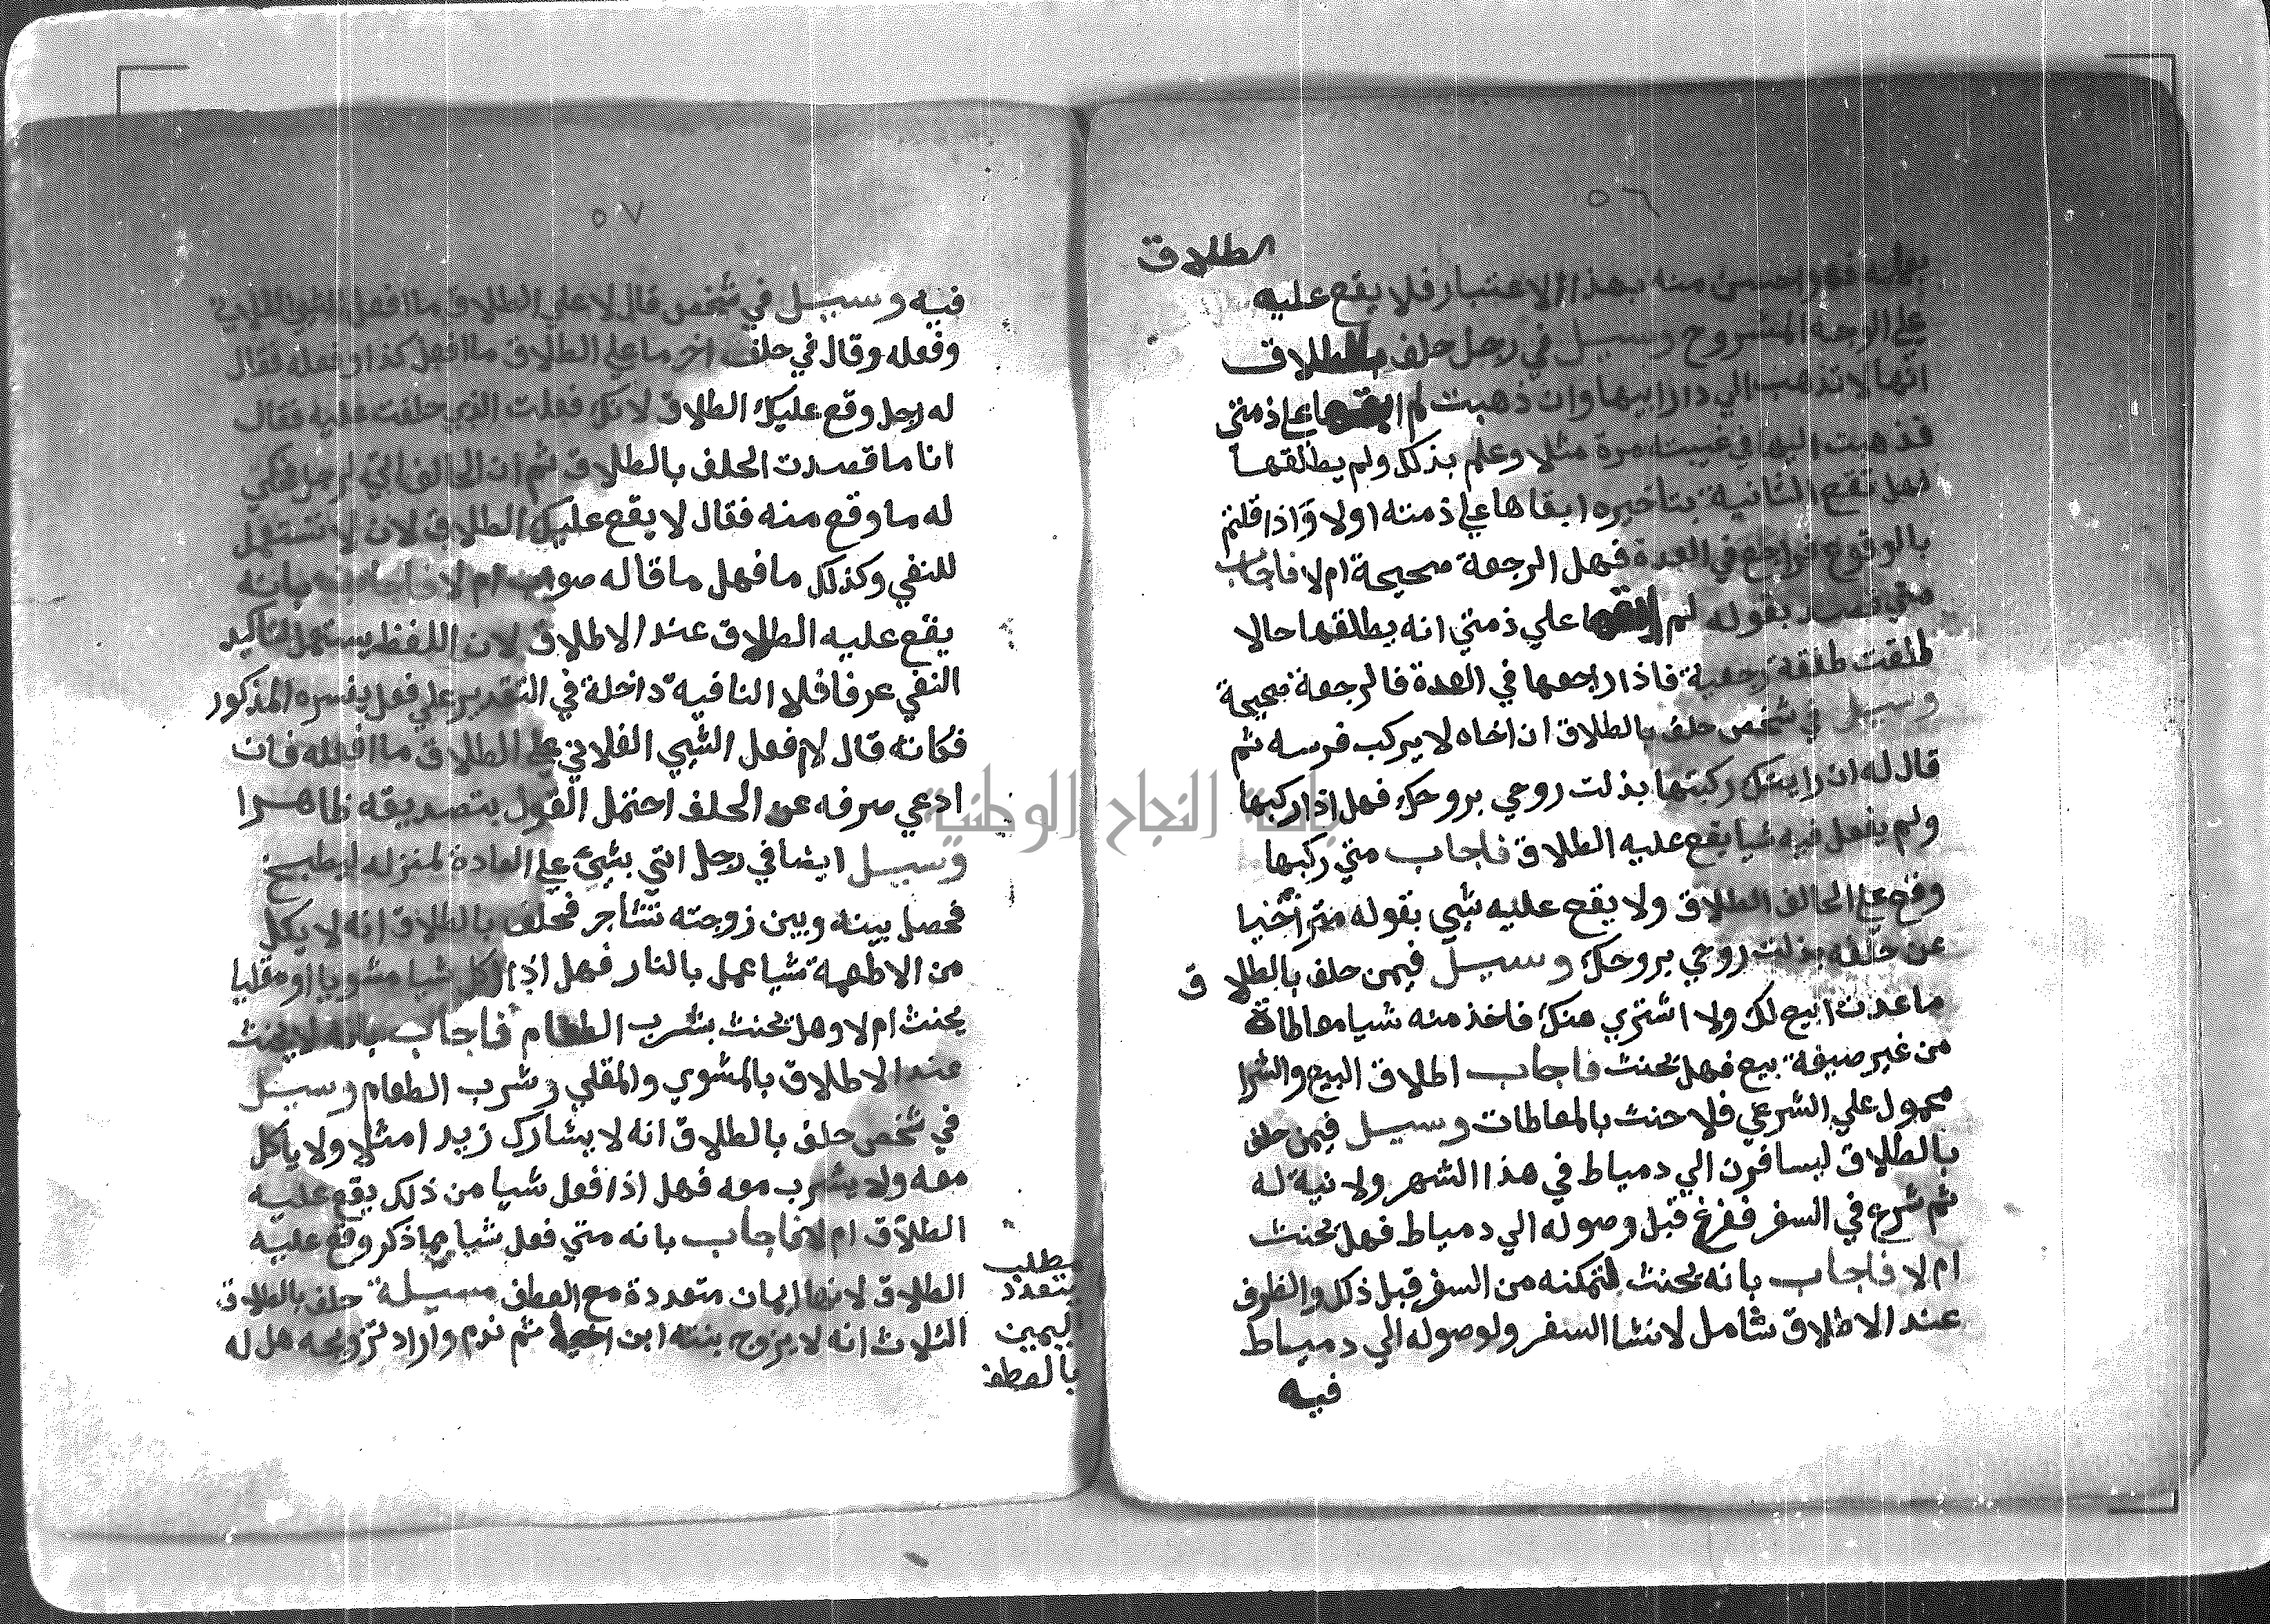 ٥٦
الطلاق
منه بهذا الاعتبار فلا يقع عليه
علي الوجه المشروح وسيل في رجل حلف بالطلاق
انها لا تذهب الي دار ابيها وان ذهبت لم ابقها علي ذمتي
فذهبت اليها في غيبته مرة مثلا وعلم بذلك ولم يطلقها
فهل تقع الثانية بتاخيره ابقاها علي ذمته اولا واذا قلتم
بالوقوع فراجع في العدة فهل الرجعة صحيحة ام لا فاجاب
متي قصد بقوله لم ابقها علي ذمتي انه يطلقها حالا
طلقت طلقة رجعية فاذا راجعها في العدة فالرجعة صحيحة
وسيل في شخص حلف بالطلاق ان اخاه لا يركب فرسه ثم
قال له ان رايتك ركبتها بذلت روحي بروحك فهل اذا ركبها
ولم يفعل فيه شيا يقع عليه الطلاق فاجاب متي ركبها
وقع علي الحالف الطلاق ولا يقع عليه شي بقوله متراخيا
عن حلفه بذلت روحي بروحك وسيل فيمن حلف بالطلاق
ما عدت ابيع لك ولا اشتري منك فاخذ منه شيا معاطاة
من غير صيغة بيع فهل يحنث فاجاب اطلاق البيع والشرا
محمول علي الشرعي فلا حنث بالمعاطات وسيل فيمن حلف
بالطلاق ليسافرن الي دمياط في هذا الشهر ولا نية له
ثم شرع في السفر ففرغ قبل وصوله الي دمياط فهل يحنث
ام لا فاجاب بانه يحنث لتمكنه من السفر قبل ذلك والظرف
عند الاطلاق شامل لانشا السفر ولوصوله الي دمياط
فيه
٥٧
فيه وسيل في شخص قال لا علي الطلاق ما افعل الشي الفلاني
وفعله وقال في حلف اخر ما علي الطلاق ما افعل كذا وفعله فقال
له رجل وقع عليك الطلاق لانك فعلت الذي حلفت عليه فقال
انا ما قصدت الحلف بالطلاق ثم ان الحالف اتي لرجل فحكي
له ما وقع منه فقال لا يقع عليك الطلاق لان لا تستعمل
للنفي وكذلك ما فهل ما قاله صواب ام لا فاجاب بانه
يقع عليه الطلاق عند الاطلاق لان اللفظ يستعمل لتاكيد
النفي عرفا فلا النافية داخلة في التقدير علي فعل يفسره المذكور
فكانه قال لا افعل الشي الفلاني علي الطلاق ما افعله فان
ادعي صرفه عن الحلف احتمل القول بتصديقه ظاهرا
وسيل ايضا في رجل اتي بشيئ علي العادة لمنزله ليطبخ
فحصل بينه وبين زوجته تشاجر فحلف بالطلاق انه لا يكل
من الاطعمة شيا عمل بالنار فهل اذا اكل شيا مشويا او مقليا
يحنث ام لا وهل يحنث بشرب الطعام فاجاب بانه لا يحنث
عند الاطلاق بالمشوي والمقلي وشرب الطعام وسيل
في شخص حلف بالطلاق انه لا يشارك زيدا مثلا ولا ياكل
معه ولا يشرب معه فهل اذا فعل شيا من ذلك يقع عليه
الطلاق ام لا فاجاب بانه متي فعل شيا مما ذكر وقع عليه
الطلاق لانها ايمان متعددة مع العطف مسيلة حلف بالطلاق
الثلاث انه لا يزوج بنته ابن اخيه ثم ندم واراد تزويجه هل له
مطلب
يتعدد
اليمين
بالعطف
جامعة النجاح الوطنية